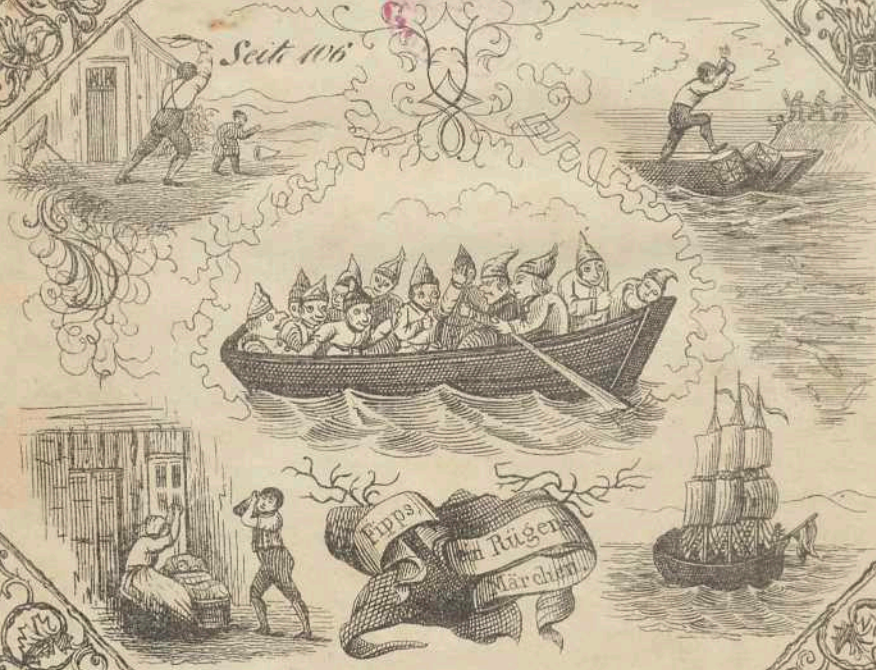 Seite 106
Fipps,
ein Rügen
Märchen.